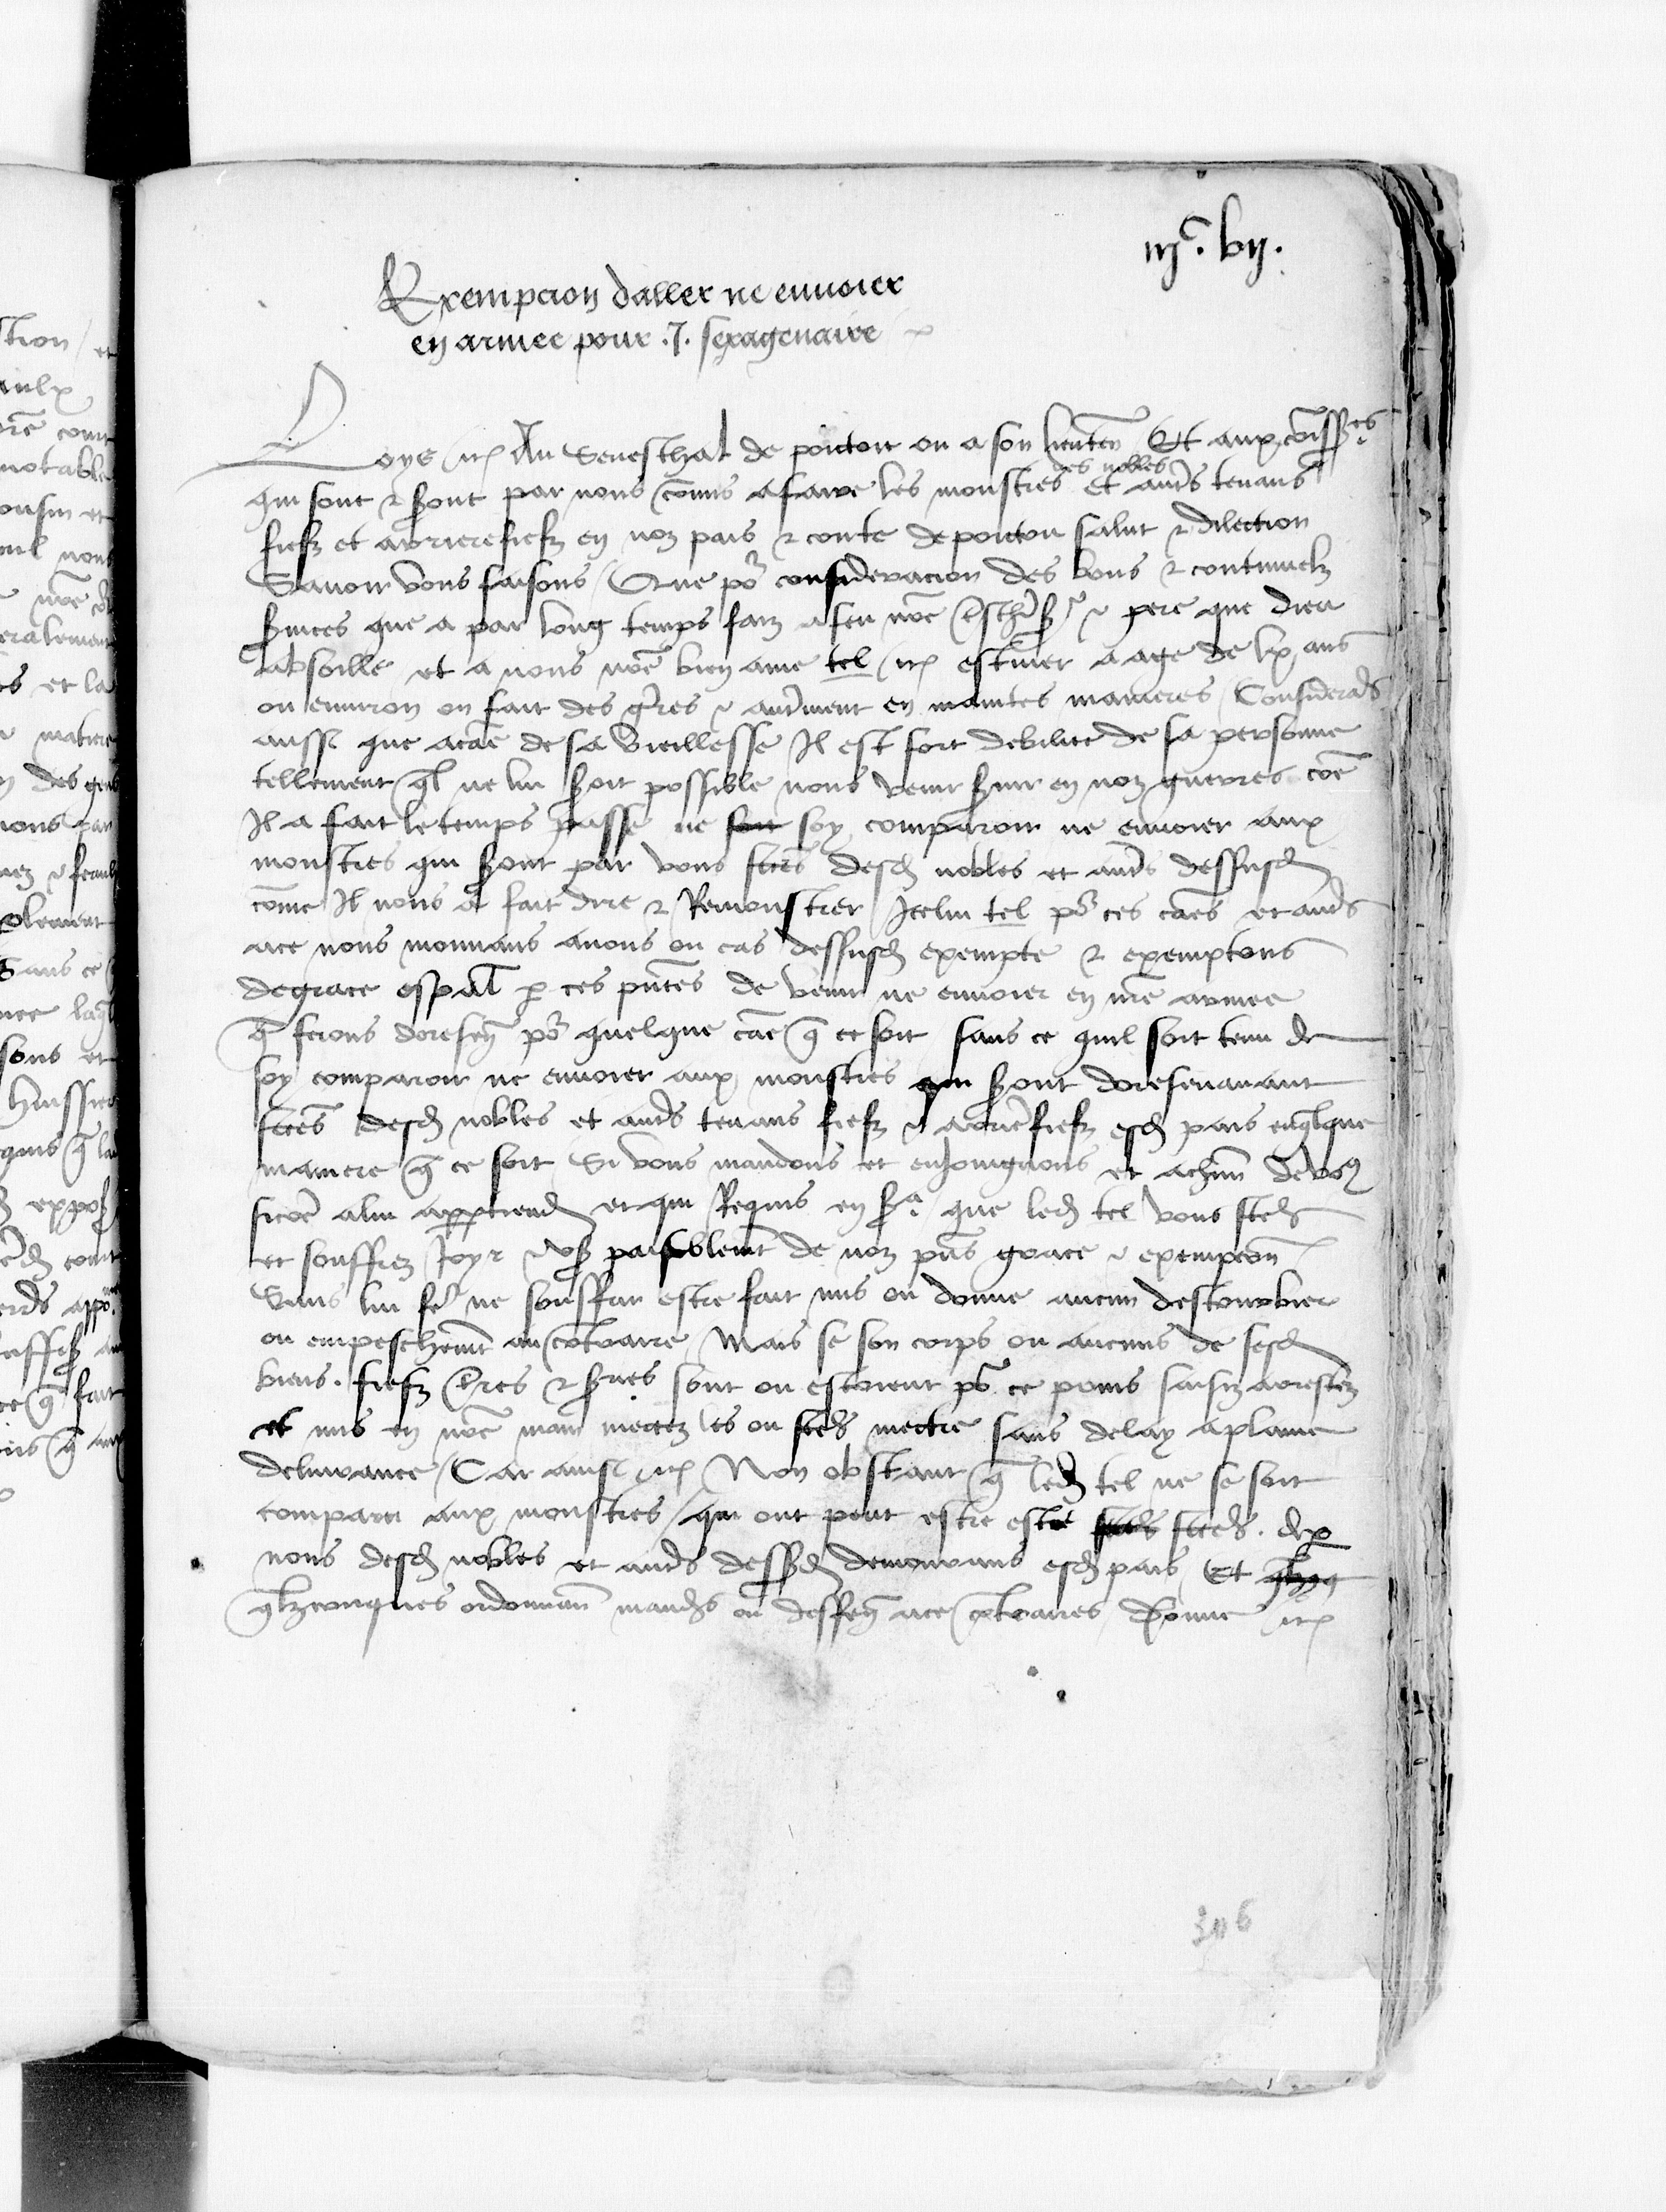 iijᶜ. vij.
Exempcion daller ne envoier
en armee pour .j. sexagenaire
Loys etc Au Seneschal de poictou ou a son lieuten̄ Et aux com̄ssʳᵉˢ
qui sont & seront par nous com̄is a faire les monstres des nobles et aut's tenans
fiefz et arrierefiefz en noz pais & conte de poictou salut & dilection
Savoir vous faisons Que poʳ consideracion des bons & continuelz
s'vices que a par long temps faiz a feu nr̄e t'scħr sʳ & pere que dieu
absoille et a nous nr̄e bien ame tel etc escuier aage de lx ans
ou environ ou fait des g'res & aut'ment en maintes manieres Considerās
aussi que a cāe de sa vieillesse Il est fort debilite de sa personne
tellement ql̄ ne lui s'oit possible nous venir s'vir en noz guerres cōe
Il a fait le temps passe ne soit soy comparoir ne envoier aux
monstres qui s'ont par vous fctēs desd nobles et aut's dessusd
com̄e Il nous a fait dire & Remonstrer Icelui tel poʳ ces cāes et aut's
a ce nous mouvans avons ou cas dessusd exempte & exemptons
de grace esp̄al p ces pn̄tes de venir ne envoier en nr̄e armee
q̄ ferons doresen̄ poʳ quelque cāe q̄ ce soit sans ce quil soit tenu de
soy comparoir ne envoier aux monstres qui s'ont doresenavant
fctēs desd nobles et aut's tenans fiefz & arrier'fiefz esd pais en ql̄que
maniere q̄ ce soit Si vous mandons et enjoignons et a chūn de voꝰ
sicōe a lui appartiend et qui Requis en sᵃ que led tel vous fctēs
et souffrez Joyr & us' paisiblemt̄ de noz pn̄s grace & exempcōn
Sans lui fē ne souffrir estre fait mis ou donne aucun destourbier
ou empeschemt̄ au cōtraire Mais se son corps ou aucuns de sesd
biens. fiefz t'res & s'ries sont ou estoient poʳ ce prins saisiz arrestez
et mis en nr̄e main mectez les ou fctēs mectre sans delay a plaine
delivrance Car ainsi etc Non obstant q̄ led tel ne se soit
comparu aux monstres qui ont peut estre este fctēs fctēs. de p
nous desd nobles et aut's dessusd demourans esd pais Et qlzcq
ql̄zconques ordonnan̄ mand's ou deffen̄ a ce cōtraires Donne etc
306